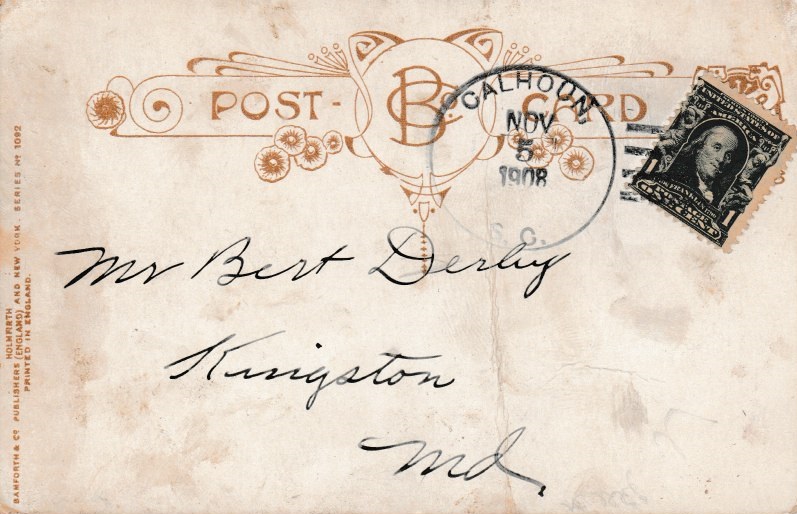 POST- BCo CARD
CALHOUN,
NOV
5
1908
S.C.
UNITED STATES OF
AMERICA
1 1
FRANKLIN
ONE CENT
Mr Bert Derby
Kingston
Md.
BAMFORTH & Co PUBLISHERS (ENGLAND) AND NEW YORK. SERIES No 1092
HOLMFIRTH
PRINTED IN ENGLAND.